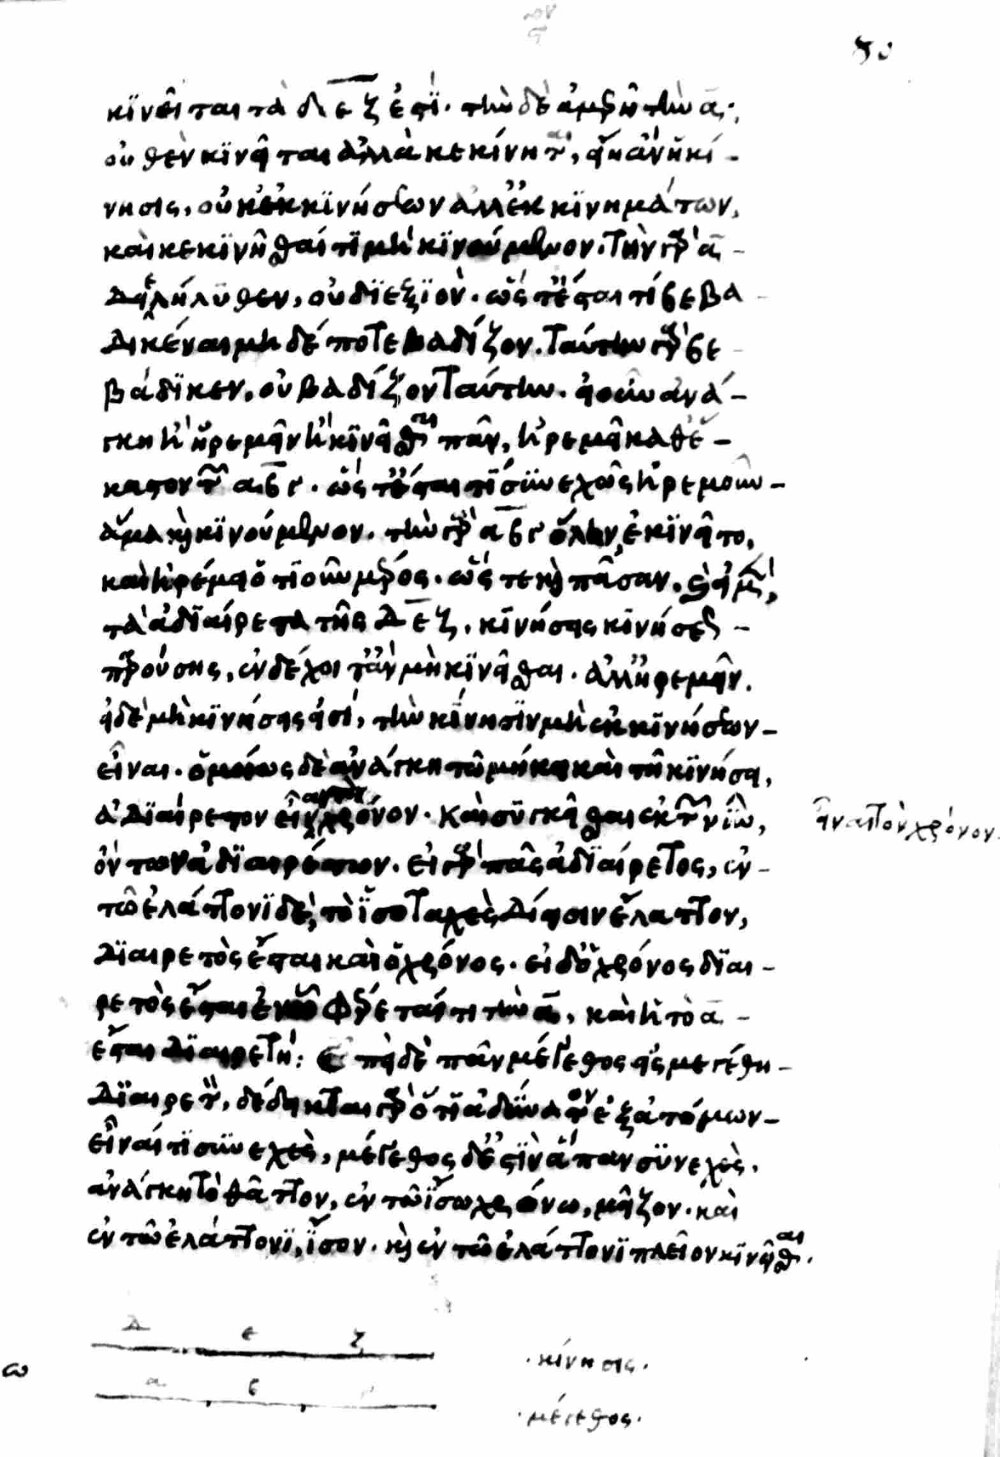 κϊνεῖται τὰ δ ε ζ ἐστί. τὴν δὲ ἀμερῆ τὴν α·
οὐθὲν κϊνεῖται ἀλλὰ κεκίνηται, εἴη ἂν ἡ κί-
νησις, οὐκ ἐκ κϊνήσεων ἀλλ' ἐκ κϊνημάτων,
καὶ κεκϊνῆσθαί τι μὴ κϊνούμενον. τὴν γὰρ α
διελήλυθεν, οὐ διεξϊόν. ὥστε ἔσται τί βεβα
δικέναι μηδέποτε βαδίζον. ταύτην γὰρ βε
βάδϊκεν, οὐ βαδίζον ταύτην. εἰ οὖν ἀνά-
γκη ἢ ἠρεμεῖν ἢ κϊνεῖσθαι πᾶν, ἠρεμεῖ καθ' ἕ-
καστον τῶν α β γ. ὥστε ἔσται τὶ συνεχῶς ἠρεμοῦν
ἅμα καὶ κϊνούμενον. τὴν γὰρ α β γ ὅλην ἐκϊνεῖτο,
καὶ ἠρέμει ὁτιοῦν μέρος. ὥστε καὶ πᾶσαν. καὶ εἰ μὲν
τὰ ἀδιαίρετα τῆς Δ ε ζ, κϊνήσεις κϊνήσεως
παρούσης, ἐνδέχοιτ' ἂν μὴ κϊνεῖσθαι. ἀλλ' ἠρεμεῖν.
εἰ δὲ μὴ κϊνήσεις εἰσί, τὴν κίνησϊν μὴ ἐκ κϊνήσεων
εἶναι. ὁμοίως δὲ ἀνάγκη τῶ μήκει καὶ τῆ κϊνήσει,
ἀδϊαίρετον εἶναι τὸν χρόνον. καὶ συγκεῖσθαι ἐκ τῶν νῦν,
εἶναι τὸν χρόνον
ὄντων ἀδϊαιρέτων. εἰ γὰρ πᾶς ἀδϊαίρετος, ἐν
τῶ ἐλάττονϊ δὲ, τὸ ἰσοταχὲς δίεισιν ἔλαττον,
δϊαιρετὸς ἔσται καὶ ὁ χρόνος. εἰ δ' ὁ χρόνος δϊαι-
ρετὸς ἔσται ἐν ᾧ φέρεταί τι τὴν α, καὶ ἡ τὸ α
ἔσται δϊαιρετή: ἐπεὶ δὲ πᾶν μέγεθος εἰς μεγέθη
δϊαιρετόν, δέδεικται γὰρ ὅτι ἀδύνατον ἐξ ἀτόμων
εἶναί τι συνεχὲς, μέγεθος δ' ἐστϊν ἅπαν συνεχὲς.
ἀνάγκη τὸ θᾶττον, ἐν τῶ ἴσω χρόνω, μεῖζον. καὶ
ἐν τῶ ἐλάττονϊ, ἴσον. καὶ ἐν τῶ ἐλάττονϊ πλεῖον κϊνεῖσθαι.
Δ ε ζ
· κίνησις ·
ω
α β γ
· μέγεθος ·